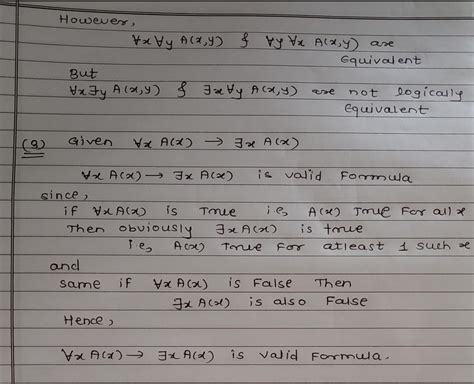 However,
∀x∀y A(x,y) & ∀y∀x A(x,y) are
Equivalent
But
∀x∃y A(x,y) & ∃x∀y A(x,y) are not logically
Equivalent
(9) Given ∀x A(x) → ∃x A(x)
∀x A(x) → ∃x A(x) is valid Formula
since,
if ∀x A(x) is True i.e, A(x) True For all x
Then obviously ∃x A(x) is true
i.e, A(x) True For atleast 1 such x
and
same if ∀x A(x) is False Then
∃x A(x) is also False
Hence,
∀x A(x) → ∃x A(x) is valid Formula.